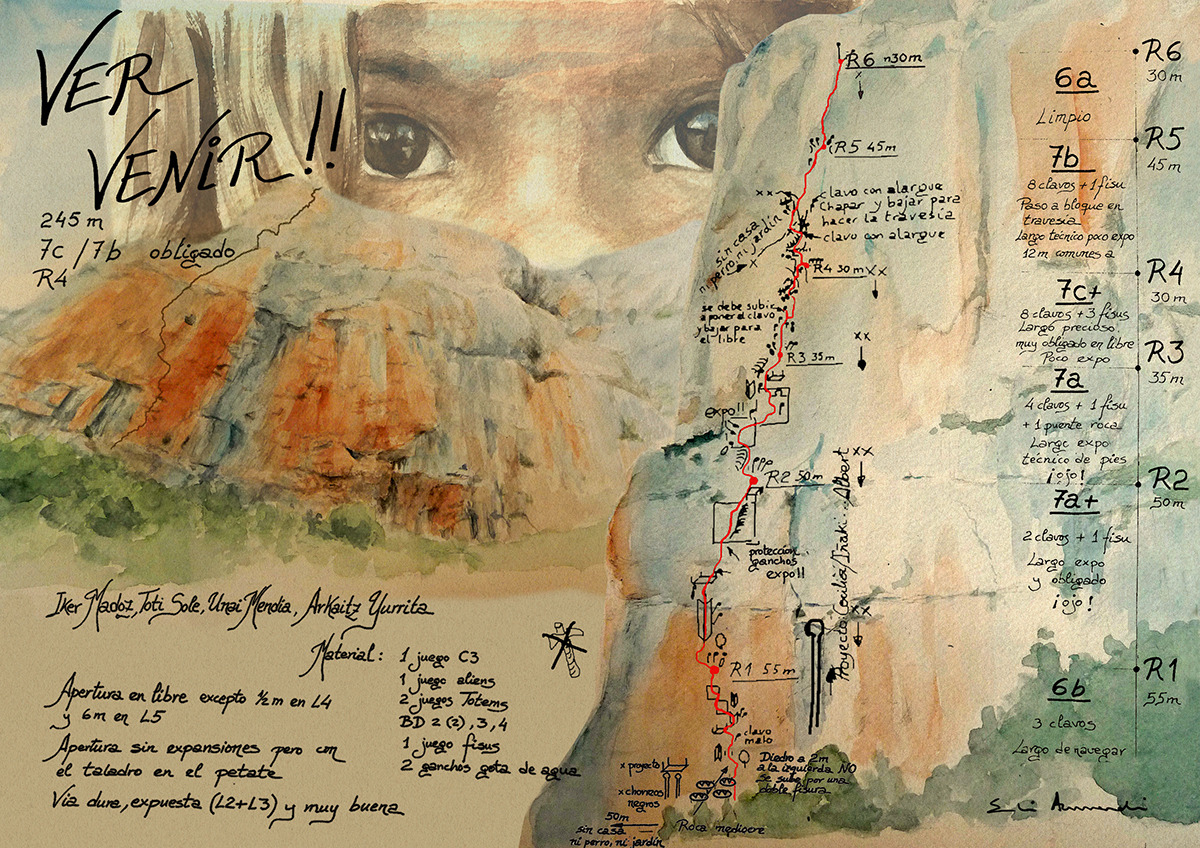 VER
VENIR!!
245 m
7c / 7b obligado
R4
Iker Madoz, Toti Sole, Unai Mendia, Arkaitz Yurrita
Material: 1 juego C3
1 juego aliens
2 juegos Totems
BD 2 (2), 3, 4
1 juego fisus
2 ganchos gota de agua
Apertura en libre excepto ½ m en L4
y 6m en L5
Apertura sin expansiones pero con
el taladro en el petate
Vía dura, expuesta (L2+L3) y muy buena
R6 n30m
R5 45m
clavo con alargue
chapar y bajar para
hacer la travesía
clavo con alargue
sin casa
ni perro, ni jardín
R4 30m
se debe subir
a poner el clavo
y bajar para
el libre
R3 35m
expo!!
R2 50m
protección
ganchos
expo!!
Proyecto Iñaki... Albert
R1 55m
clavo
malo
Diedro a 2m
a la izquierda NO
Se sube por una
doble fisura
x proyecto
x chorreos
negros
50m
sin casa
ni perro, ni jardín
Roca mediocre
R6
30m
6a
Limpio
R5
45m
7b
8 clavos + 1 fisu
Paso a bloque en
travesía
Largo técnico poco expo
12m comunes a
R4
30m
7c+
8 clavos + 3 fisus
Largo precioso,
muy obligado en libre
Poco expo
R3
35m
7a
4 clavos + 1 fisu
+ 1 puente roca
Largo expo
técnico de pies
¡ojo!
R2
50m
7a+
2 clavos + 1 fisu
Largo expo
y obligado
¡ojo!
R1
55m
6b
3 clavos
Largo de navegar